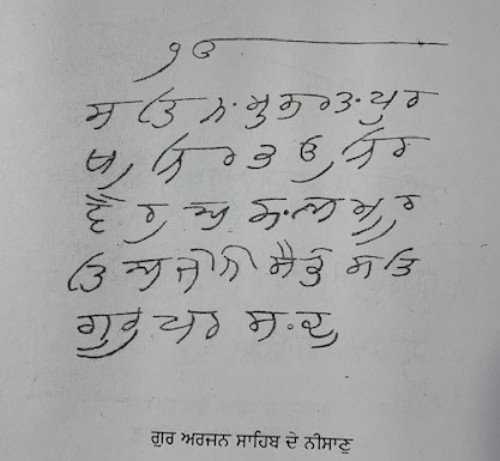 ੴ
ਸਤਿ ਨ.ਮੁ ਕਰਤ.ਪੁਰ
ਖੁ ਨਿਰਭਉ ਨਿਰ
ਵੈਰੁ ਅਕ.ਲ ਮੂਰ
ਤਿ ਅਜੋਨੀ ਸੈਭੰ ਸਤਿ
ਗੁਰ ਪਰਸ.ਦੁ
ਗੁਰ ਅਰਜਨ ਸਾਹਿਬ ਦੇ ਨੀਸਾਣੁ